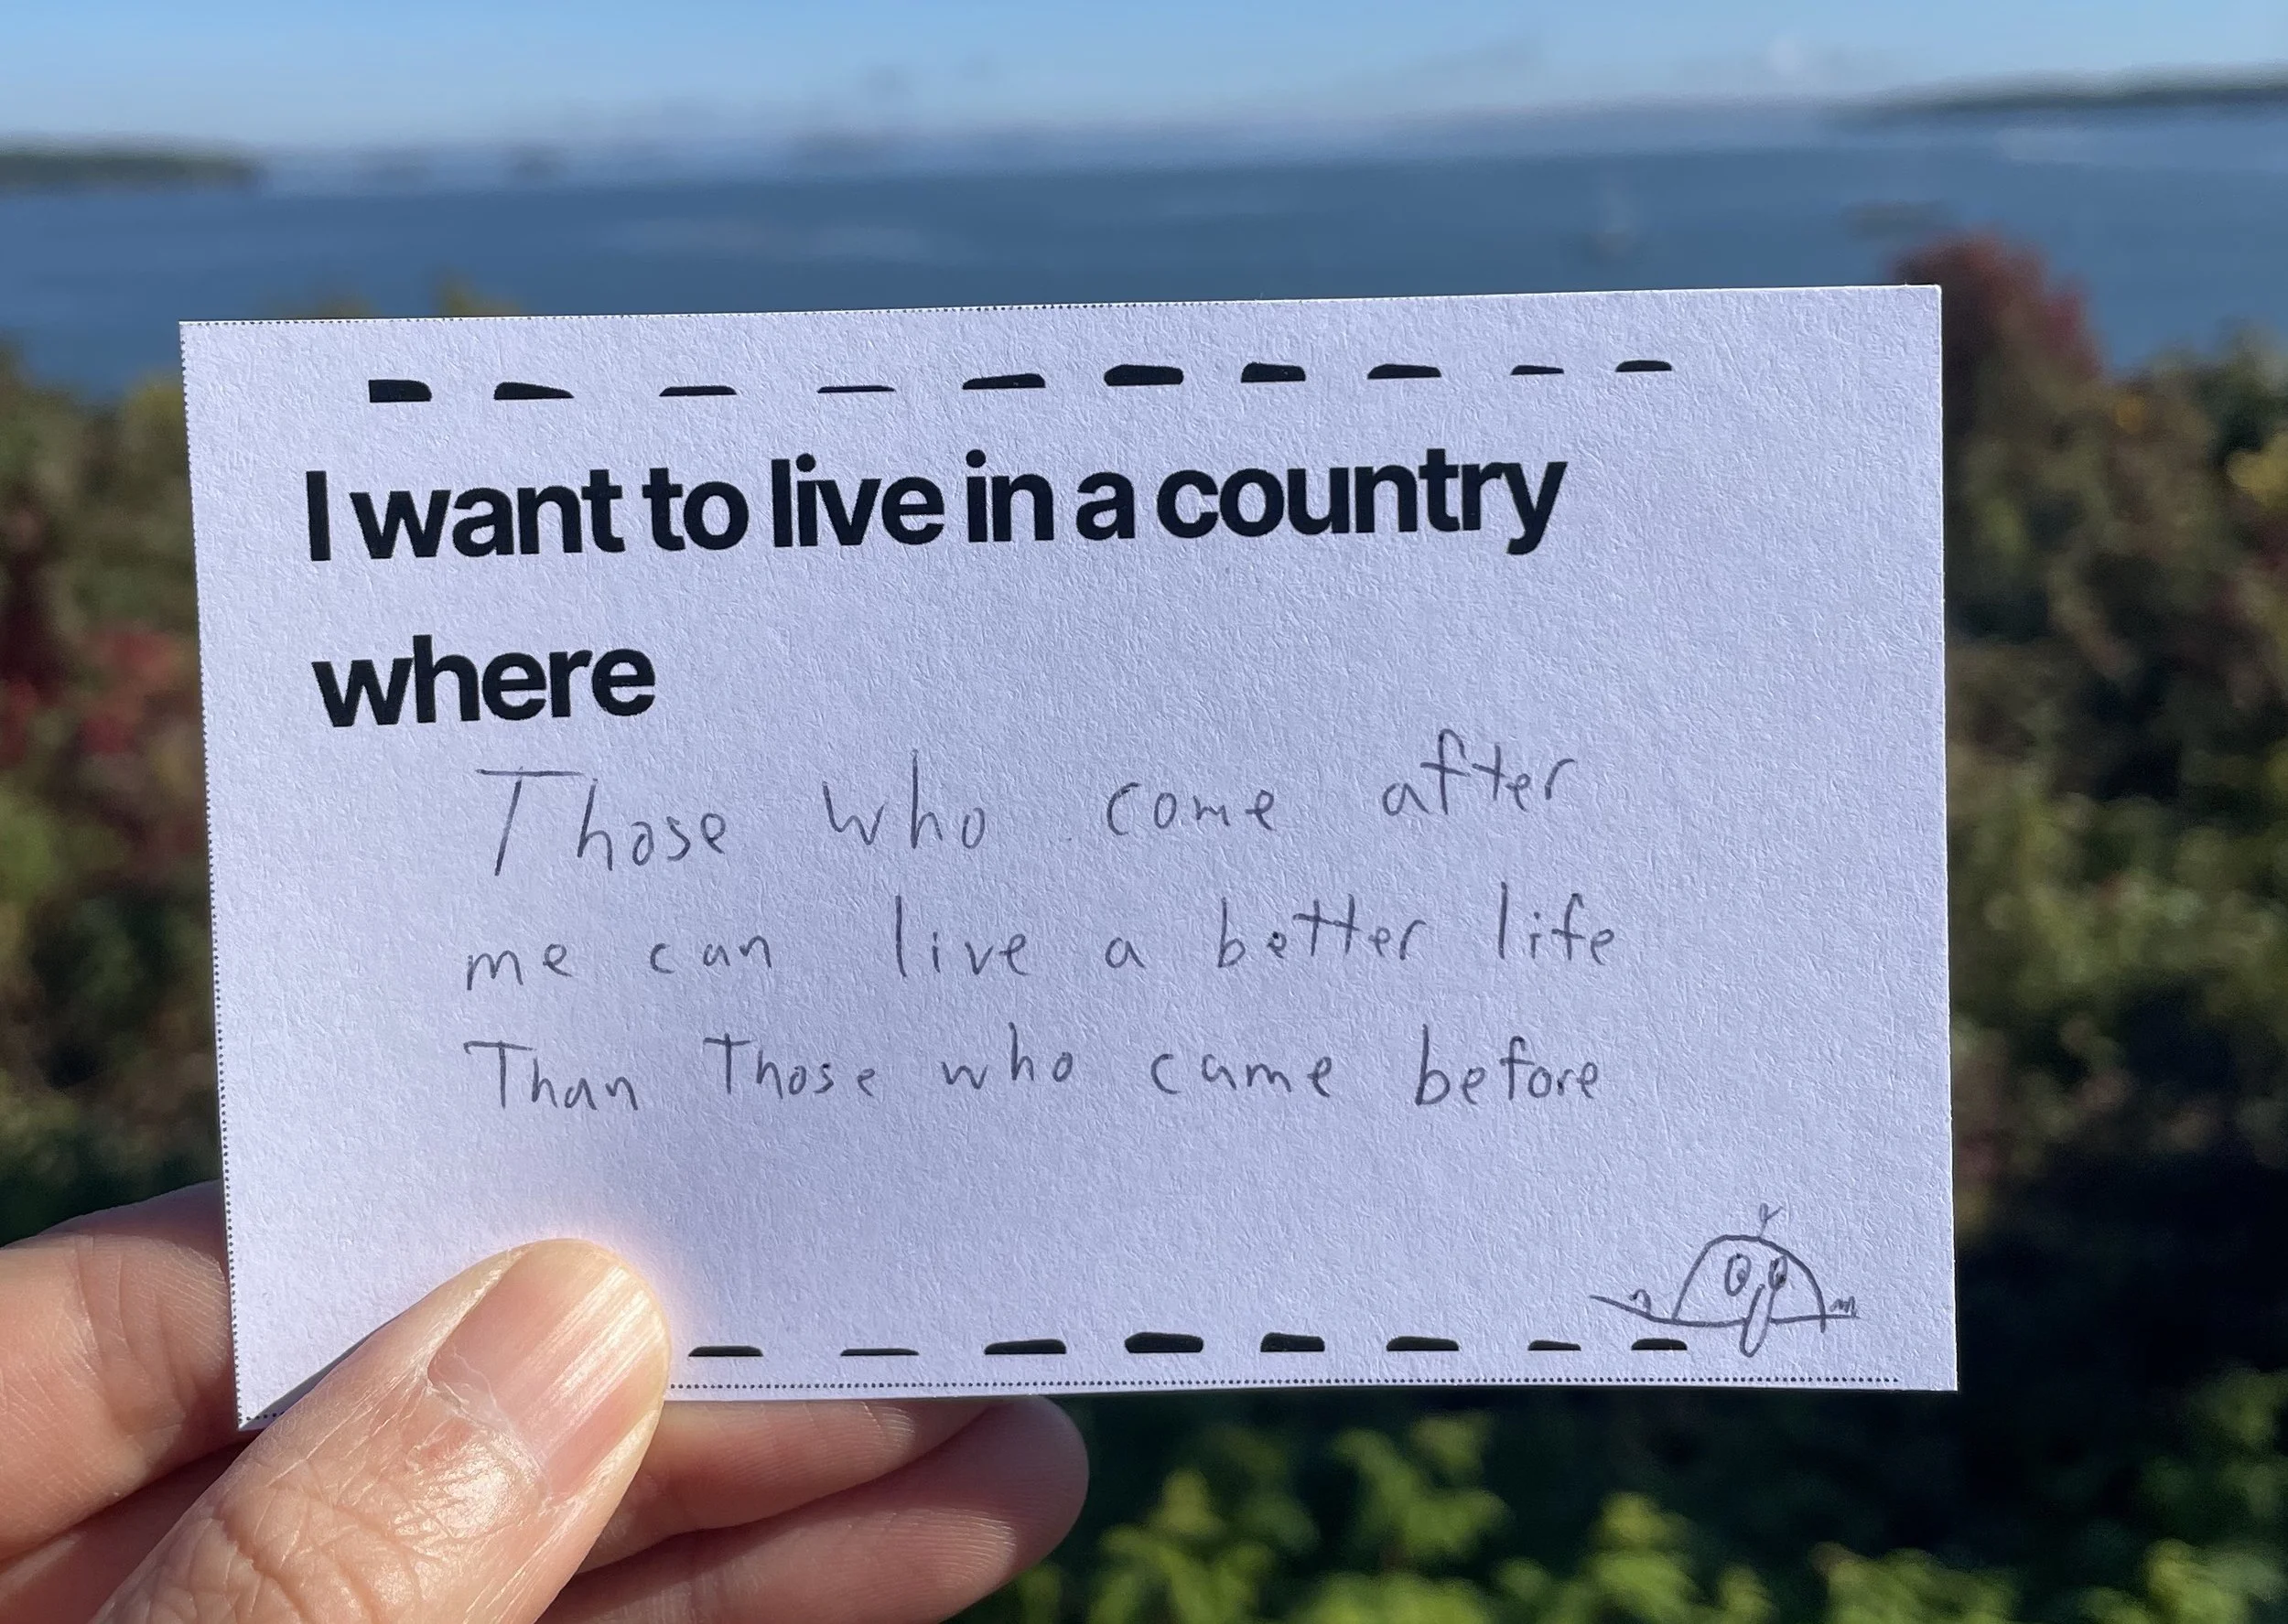 I want to live in a country
where
Those who come after
me can live a better life
Than Those who came before